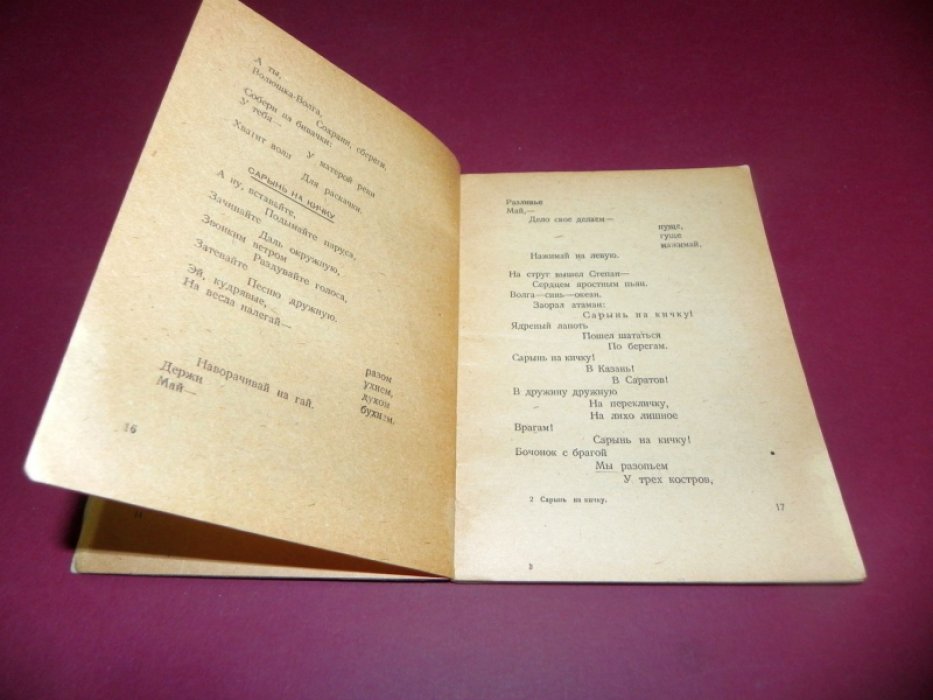 А ты,
Волюшка-Волга,
Сохрани, сбереги,
Собери на бивачки:
У тебя—
У матерой реки
Хватит воли
Для раскачки.
САРЫНЬ НА
А ну, вставайте,
Подымайте паруса,
Зачинайте
Даль окружную,
Звонким ветром
Раздувайте голоса,
Затевайте
Песню дружную.
Эй, кудрявые,
На весла налегай—
разом
ухнем,
духом
бухнем,
Наворачивай на гай.
Держи
Май—
16
Разливье
Май,—
Дело свое делаем—
пуще,
гуще
нажимай,
Нажимай на левую.
На струг вышел Степан—
Сердцем яростным пьян.
Волга—синь—океан.
Заорал атаман:
Сарынь на кичку!
Ядреный лапоть
Пошел шататься
По берегам.
Сарынь на кичку!
В Казань!
В Саратов!
В дружину дружную
На перекличку,
На лихо лишное
Врагам!
Сарынь на кичку!
Бочонок с брагой
Мы разопьем
У трех костров,
2 Сарынь на кичку.
17